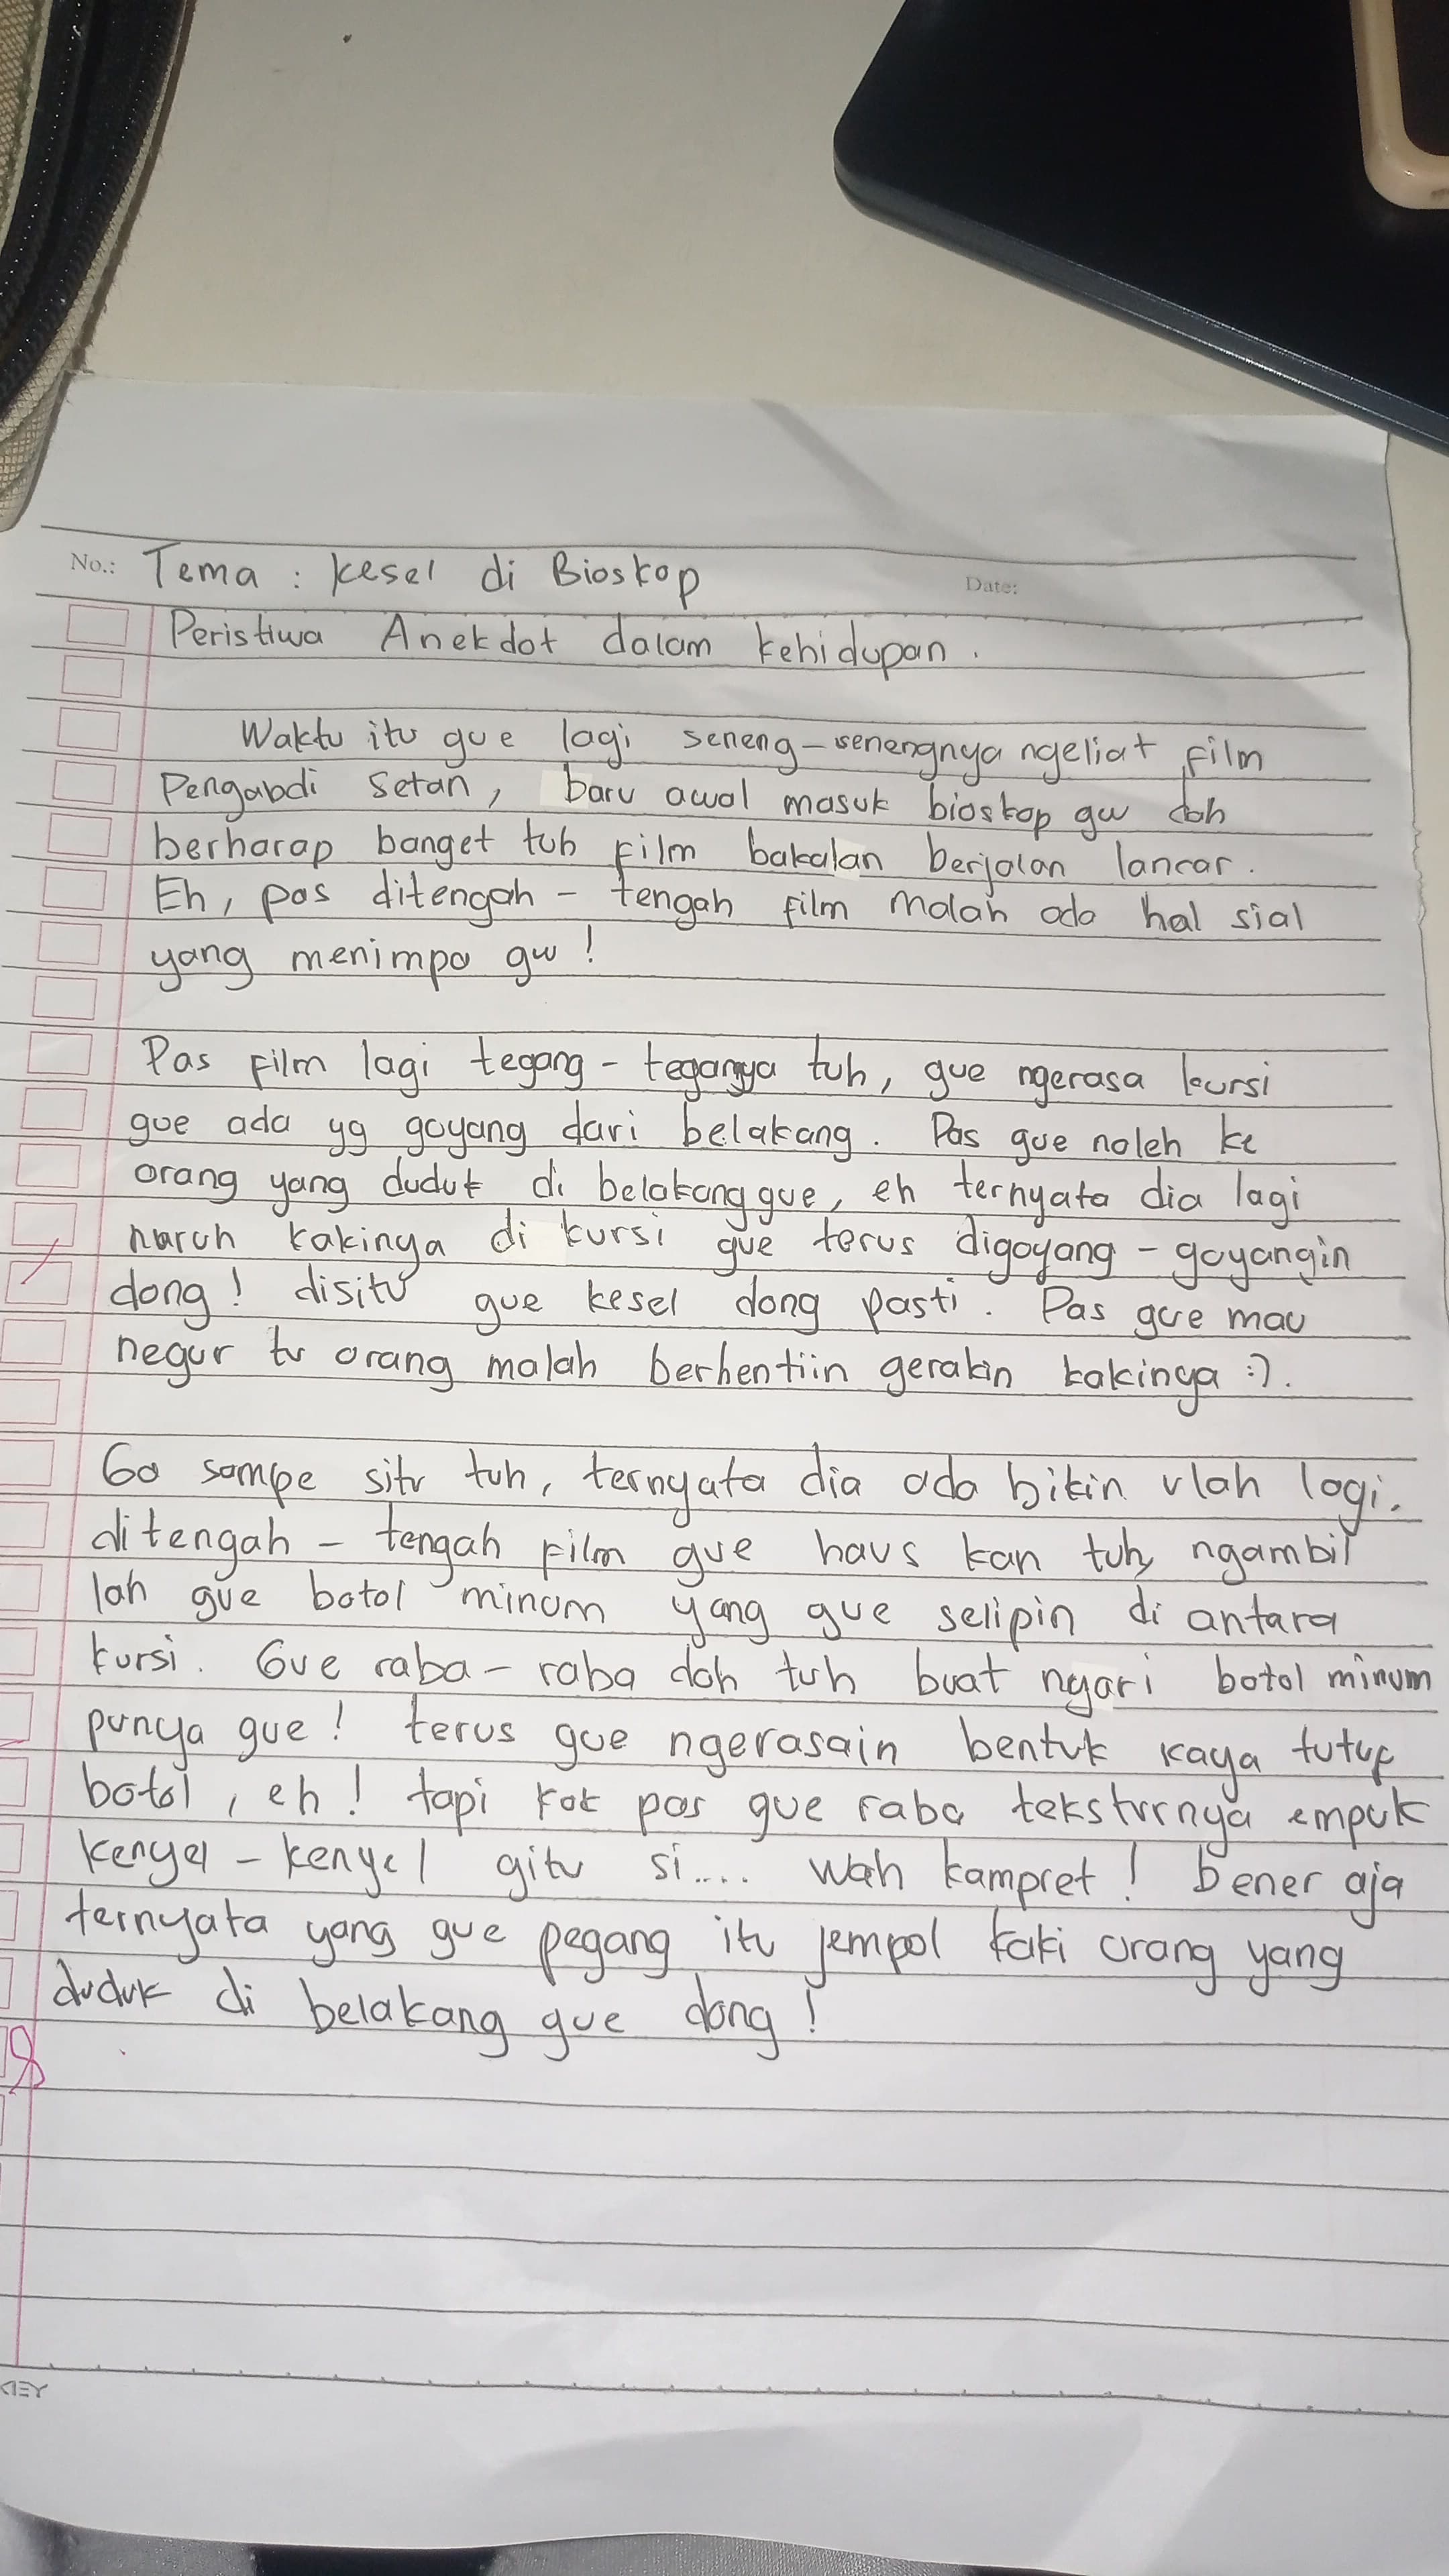 No.: Tema : kesel di Bioskop
Date:
Peristiwa Anekdot dalam kehidupan.
Waktu itu gue lagi seneng-senengnya ngeliat film
Pengabdi Setan, baru awal masuk bioskop gw dah
berharap banget tuh film bakalan berjalan lancar.
Eh, pas ditengah - tengah film malah ada hal sial
yang menimpa gw!
Pas film lagi tegang - tegangya tuh, gue ngerasa kursi
gue ada yg goyang dari belakang. Pas gue noleh ke
orang yang duduk di belakang gue, eh ternyata dia lagi
naruh kakinya di kursi gue terus digoyang - goyangin
dong! disitu gue kesel dong pasti. Pas gue mau
negur tu orang malah berhentiin gerakin kakinya :).
Ga sampe situ tuh, ternyata dia ada bikin ulah lagi.
ditengah - tengah film gue haus kan tuh, ngambil
lah gue botol minum yang gue selipin di antara
kursi. Gue raba - raba dah tuh buat nyari botol minum
punya gue! terus gue ngerasain bentuk kaya tutup
botol, eh! tapi kok pas gue raba teksturnya empuk
kenyel - kenyel gitu si.... wah kampret! bener aja
ternyata yang gue pegang itu jempol kaki orang yang
duduk di belakang gue dong!
KIEY